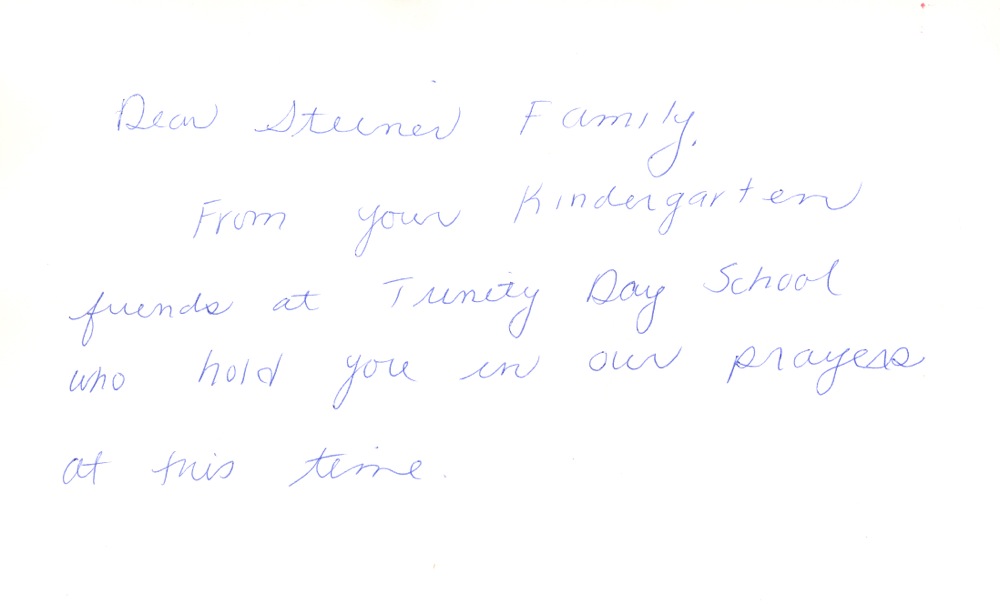 Dear Steiner Family,
From your Kindergarten
friends at Trinity Day School
who hold you in our prayers
at this time.